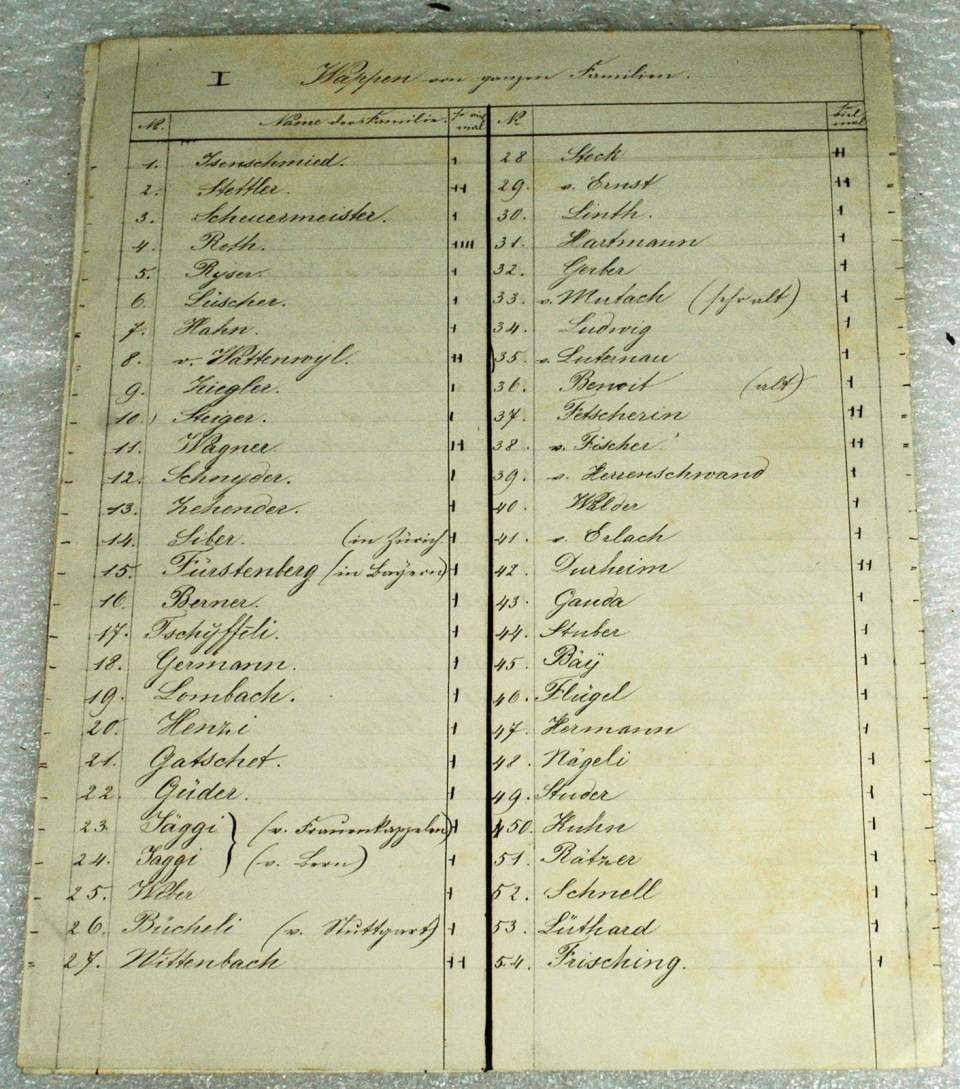 I Wappen von ganzen Familien.
N. Name der Familie. so viel mal
1. Isenschmied.
2. Stettler.
3. Scheuermeister.
4. Roth.
5. Ryser.
6. Lüscher.
7. Hahn.
8. v. Wattenwyl.
9. Ziegler.
10. Steiger.
11. Wagner
12. Schnyder.
13. Zehender.
14. Siber. (in Zürich
15. Fürstenberg (in Bayern)
16. Berner.
17. Tschÿffeli.
18. Germann.
19. Lombach.
20. Henzi
21. Gatschet.
22. Güder.
23. Jäggi (v. Frauenkappelen)
24. Jaggi (v. Bern)
25. Weber
26. Bücheli (v. Stuttgart)
27. Wittenbach
N. viel mal
28 Steck
29. v. Ernst
30. Sinth.
31. Hartmann
32. Gerber
33. v. Mutach (sehr alt)
34. Ludwig
35. v. Luternau
36. Benoit (alt)
37. Fetscherin
38 v. Fischer
39. v. Herrenschwand
40. Walder
41. v. Erlach
42. Durheim
43. Gauda
44. Stuber
45. Bäÿ
46. Flügel
47. Hermann
48. Nägeli
49. Studer
50. Kuhn
51. Rätzer
52. Schnell
53. Lüthard
54. Frisching.